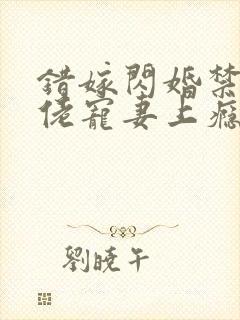 錯嫁閃婚禁
佬寵妻上癮
劉曉午